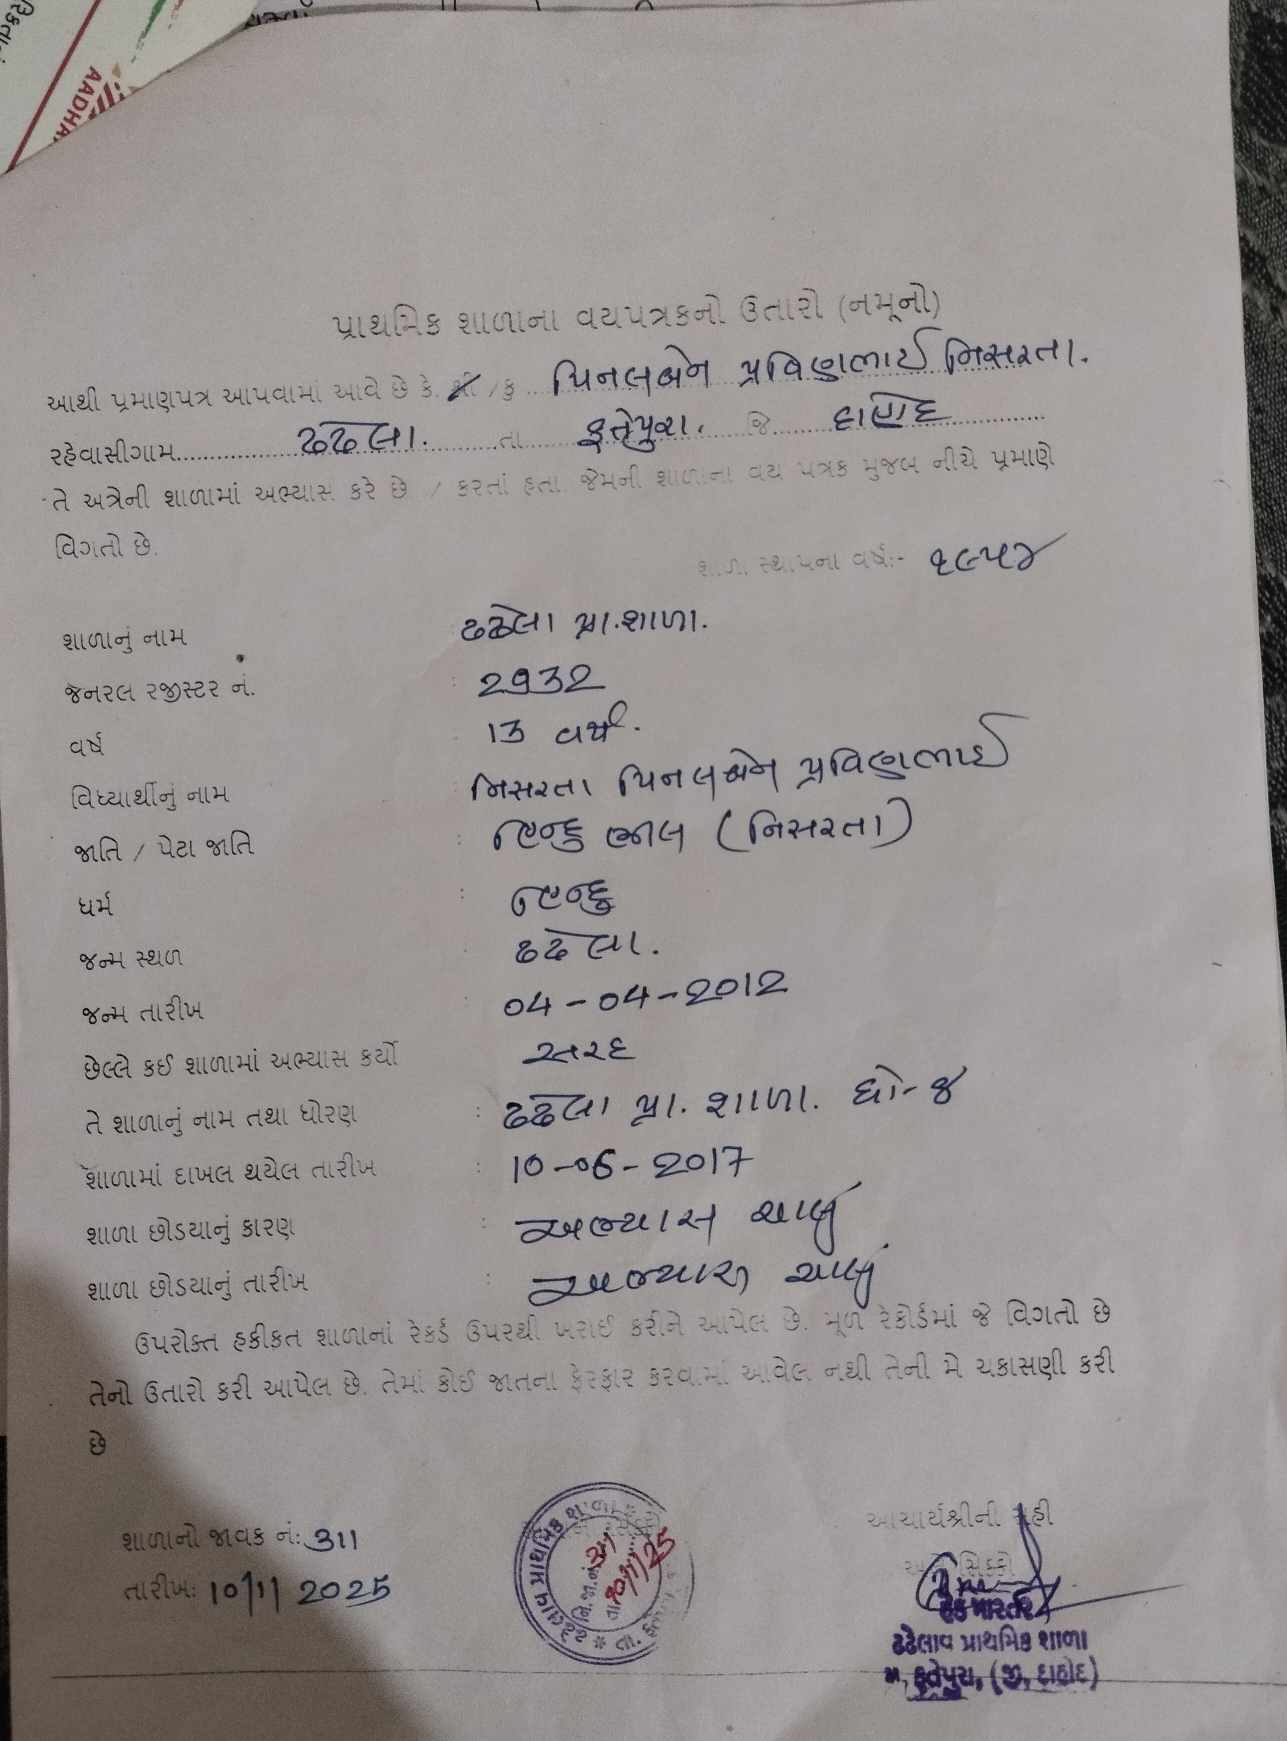 AADHA
પ્રાથમિક શાળાના વયપત્રકનો ઉતારો (નમૂનો)
આથી પ્રમાણપત્ર આપવામાં આવે છે કે. શ્રી / કુ .. પિનલબેન પ્રવિણભાઈ નિસરતા.
રહેવાસીગામ............ ઢઢેલા. ......તા..... ફતેપુરા. જિ...... દાહોદ ............
તે અત્રેની શાળામાં અભ્યાસ કરે છે / કરતાં હતા. જેમની શાળાના વય પત્રક મુજબ નીચે પ્રમાણે
વિગતો છે.
શાળા સ્થાપના વર્ષ:- ૧૯૫૪
શાળાનું નામ ઢઢેલા પ્રા.શાળા.
જનરલ રજીસ્ટર નં. : 2932
વર્ષ : 13 વર્ષ.
વિધ્યાર્થીનું નામ નિસરતા પિનલબેન પ્રવિણભાઈ
જાતિ / પેટા જાતિ : હિન્દુ ભીલ (નિસરતા)
ધર્મ : હિન્દુ
જન્મ સ્થળ : ઢઢેલા.
જન્મ તારીખ : 04-04-2012
છેલ્લે કઈ શાળામાં અભ્યાસ કર્યો સરદ
તે શાળાનું નામ તથા ધોરણ : ઢઢેલા પ્રા. શાળા. ધો-૪
શાળામાં દાખલ થયેલ તારીખ : 10-06-2017
શાળા છોડયાનું કારણ : અભ્યાસ ચાલું
શાળા છોડયાનું તારીખ : અભ્યાસ ચાલું
ઉપરોક્ત હકીકત શાળાનાં રેકર્ડ ઉપરથી ખરાઈ કરીને આપેલ છે. મૂળ રેકોર્ડમાં જે વિગતો છે
તેનો ઉતારો કરી આપેલ છે. તેમાં કોઈ જાતના ફેરફાર કરવામાં આવેલ નથી તેની મે ચકાસણી કરી
છે
શાળાનો જાવક નં: 311
તારીખ: 10/11/2025
પ્રાથમિક શાળા
નિ.જા.નં. 311
તા. 10/11/25
આચાર્યશ્રીની સહી
અને સિક્કો
હેડ માસ્તર
ઢઢેલાવ પ્રાથમિક શાળા
ફતેપુરા, (જી, દાહોદ)